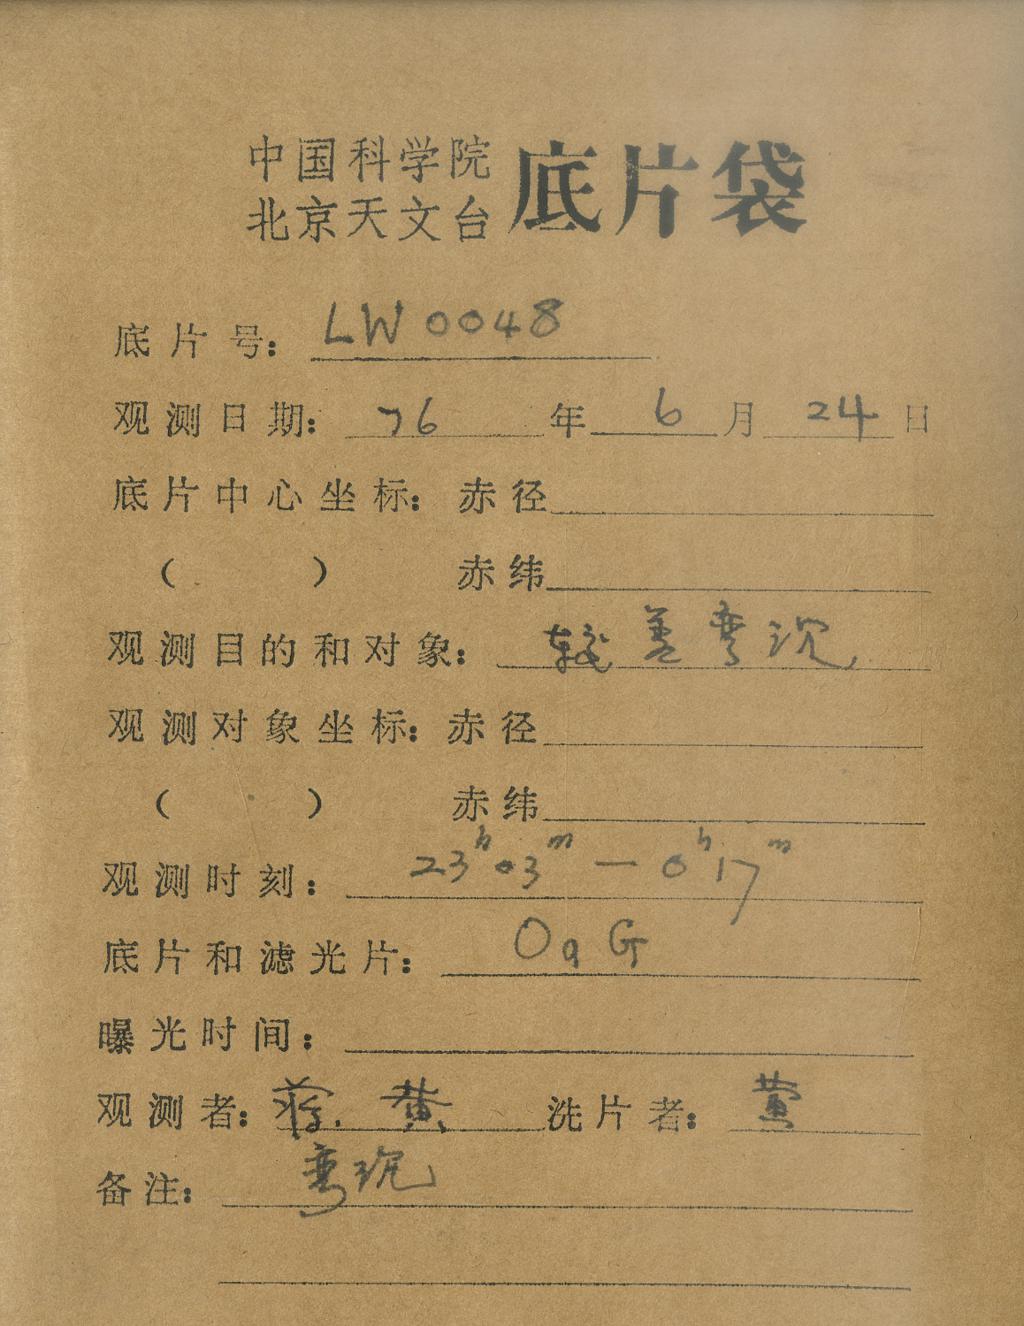 中国科学院
北京天文台
底片袋
底片号: LW0048
观测日期: 76年6月24日
底片中心坐标: 赤径
( ) 赤纬
观测目的和对象: 较差弯沉
观测对象坐标: 赤径
( ) 赤纬
观测时刻: 23h03m—0h17m
底片和滤光片: OaG
曝光时间:
观测者: 蒋. 黄 洗片者: 黄
备注: 弯沉